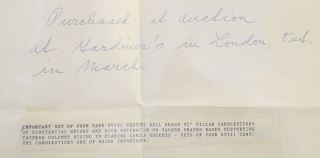 Purchased at auction
at Gardiner's in London, Ont.
in March.
IMPORTANT SET OF FOUR RARE XVIII CENTURY BELL BRASS 9½" PILLAR CANDLESTICKS
OF SUBSTANTIAL WEIGHT AND RICH PATINATION ON SQUARE SHAPED BASES SUPPORTING
TAPERED COLUMNS RISING TO FLARING CANDLE SOCKETS - SETS OF FOUR XVIII CENT-
URY CANDLESTICKS ARE OF MAJOR IMPORTANCE.